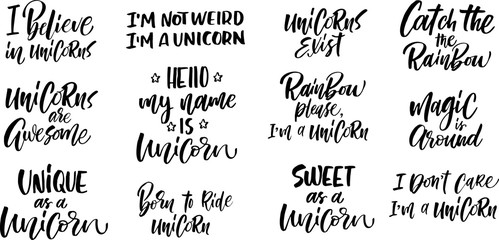 I Believe
in UniCoRns
I'M NOT WEIRD
I'M A UNICORN
UniCoRns
Exist
Catch the
the
RainBow
UniCoRns
are
Awesome
HELLO
my name
IS
Unicorn
RainBow
please,
I'm a UniCoRn
MagiC
is
Around
UNIQUE
as a
Unicorn
Born to Ride
UniCoRn
SWEET
as a
Unicorn
I Don't CaRe
I'm a UniCoRn